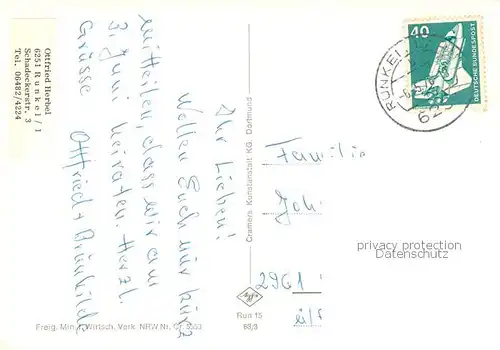 Ottfried Herbel
6251 Runkel/1
Schadeckerstr. 3
Tel. 06482/4224
Ihr Lieben!
Wollen Euch nur kurz
mitteilen, dass wir am
3. Juni heiraten. Herzl.
Grüsse Ottfried +
Cramers Kunstanstalt KG, Dortmund
40
DEUTSCHE BUNDESPOST
RUNKEL
Familie
Joh
2961
privacy protection
VOLUNTARY
Run 15
68/3
Freig. Min. f. Wirtsch. Verk. NRW Nr. Cr. 5553